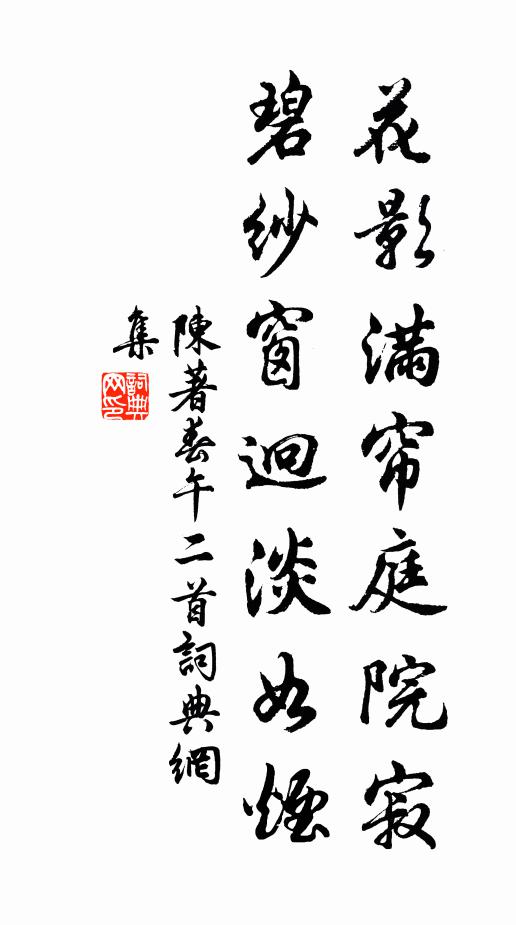 花影滿帘庭院寂
碧紗窗迥淡如煙
陳著春午二首詞典網
集
詞典
网印